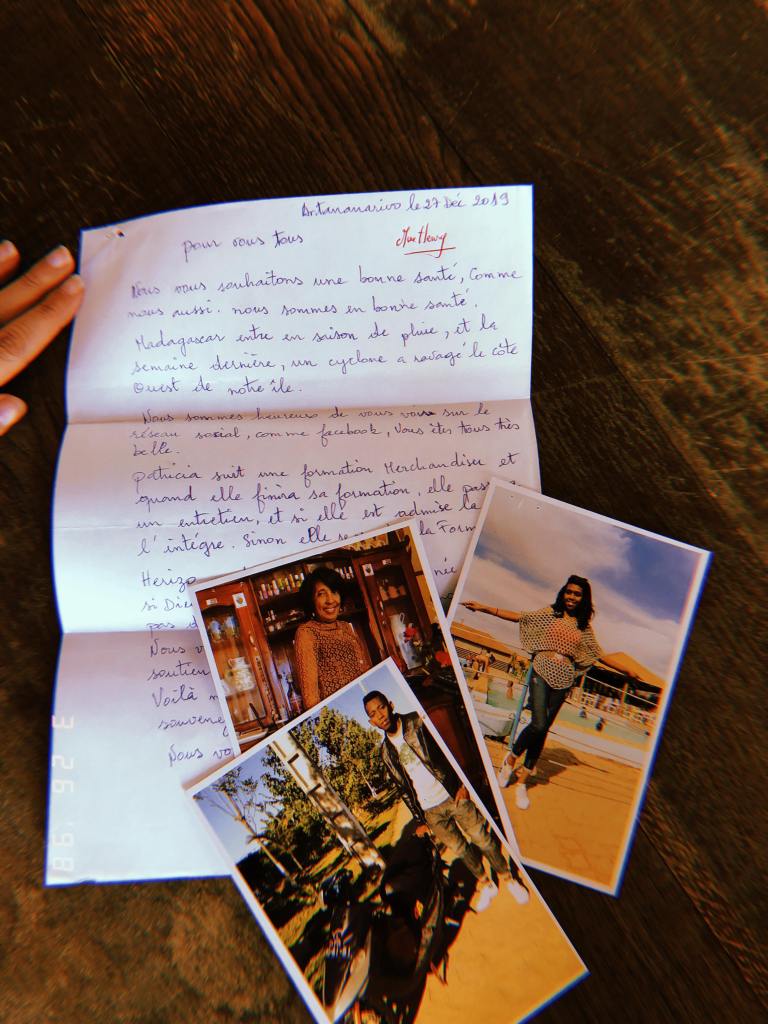 Antananarivo le 27 Déc 2019
pour vous tous
Nous vous souhaitons une bonne santé, Comme
nous aussi. nous sommes en bonne santé.
Madagascar entre en saison de pluie, et la
semaine dernière, un cyclone a ravagé le côte
Ouest de notre île.
Nous sommes heureux de vous voir sur le
réseau social, comme facebook, Vous êtes tous très
belle.
patricia suit une formation Merchandiser et
quand elle finira sa formation, elle
un entretien, et si elle est admise la
l'intégre. Sinon elle la
si
pas
Nous
soutien
Voilà
Nous
3 26 '98